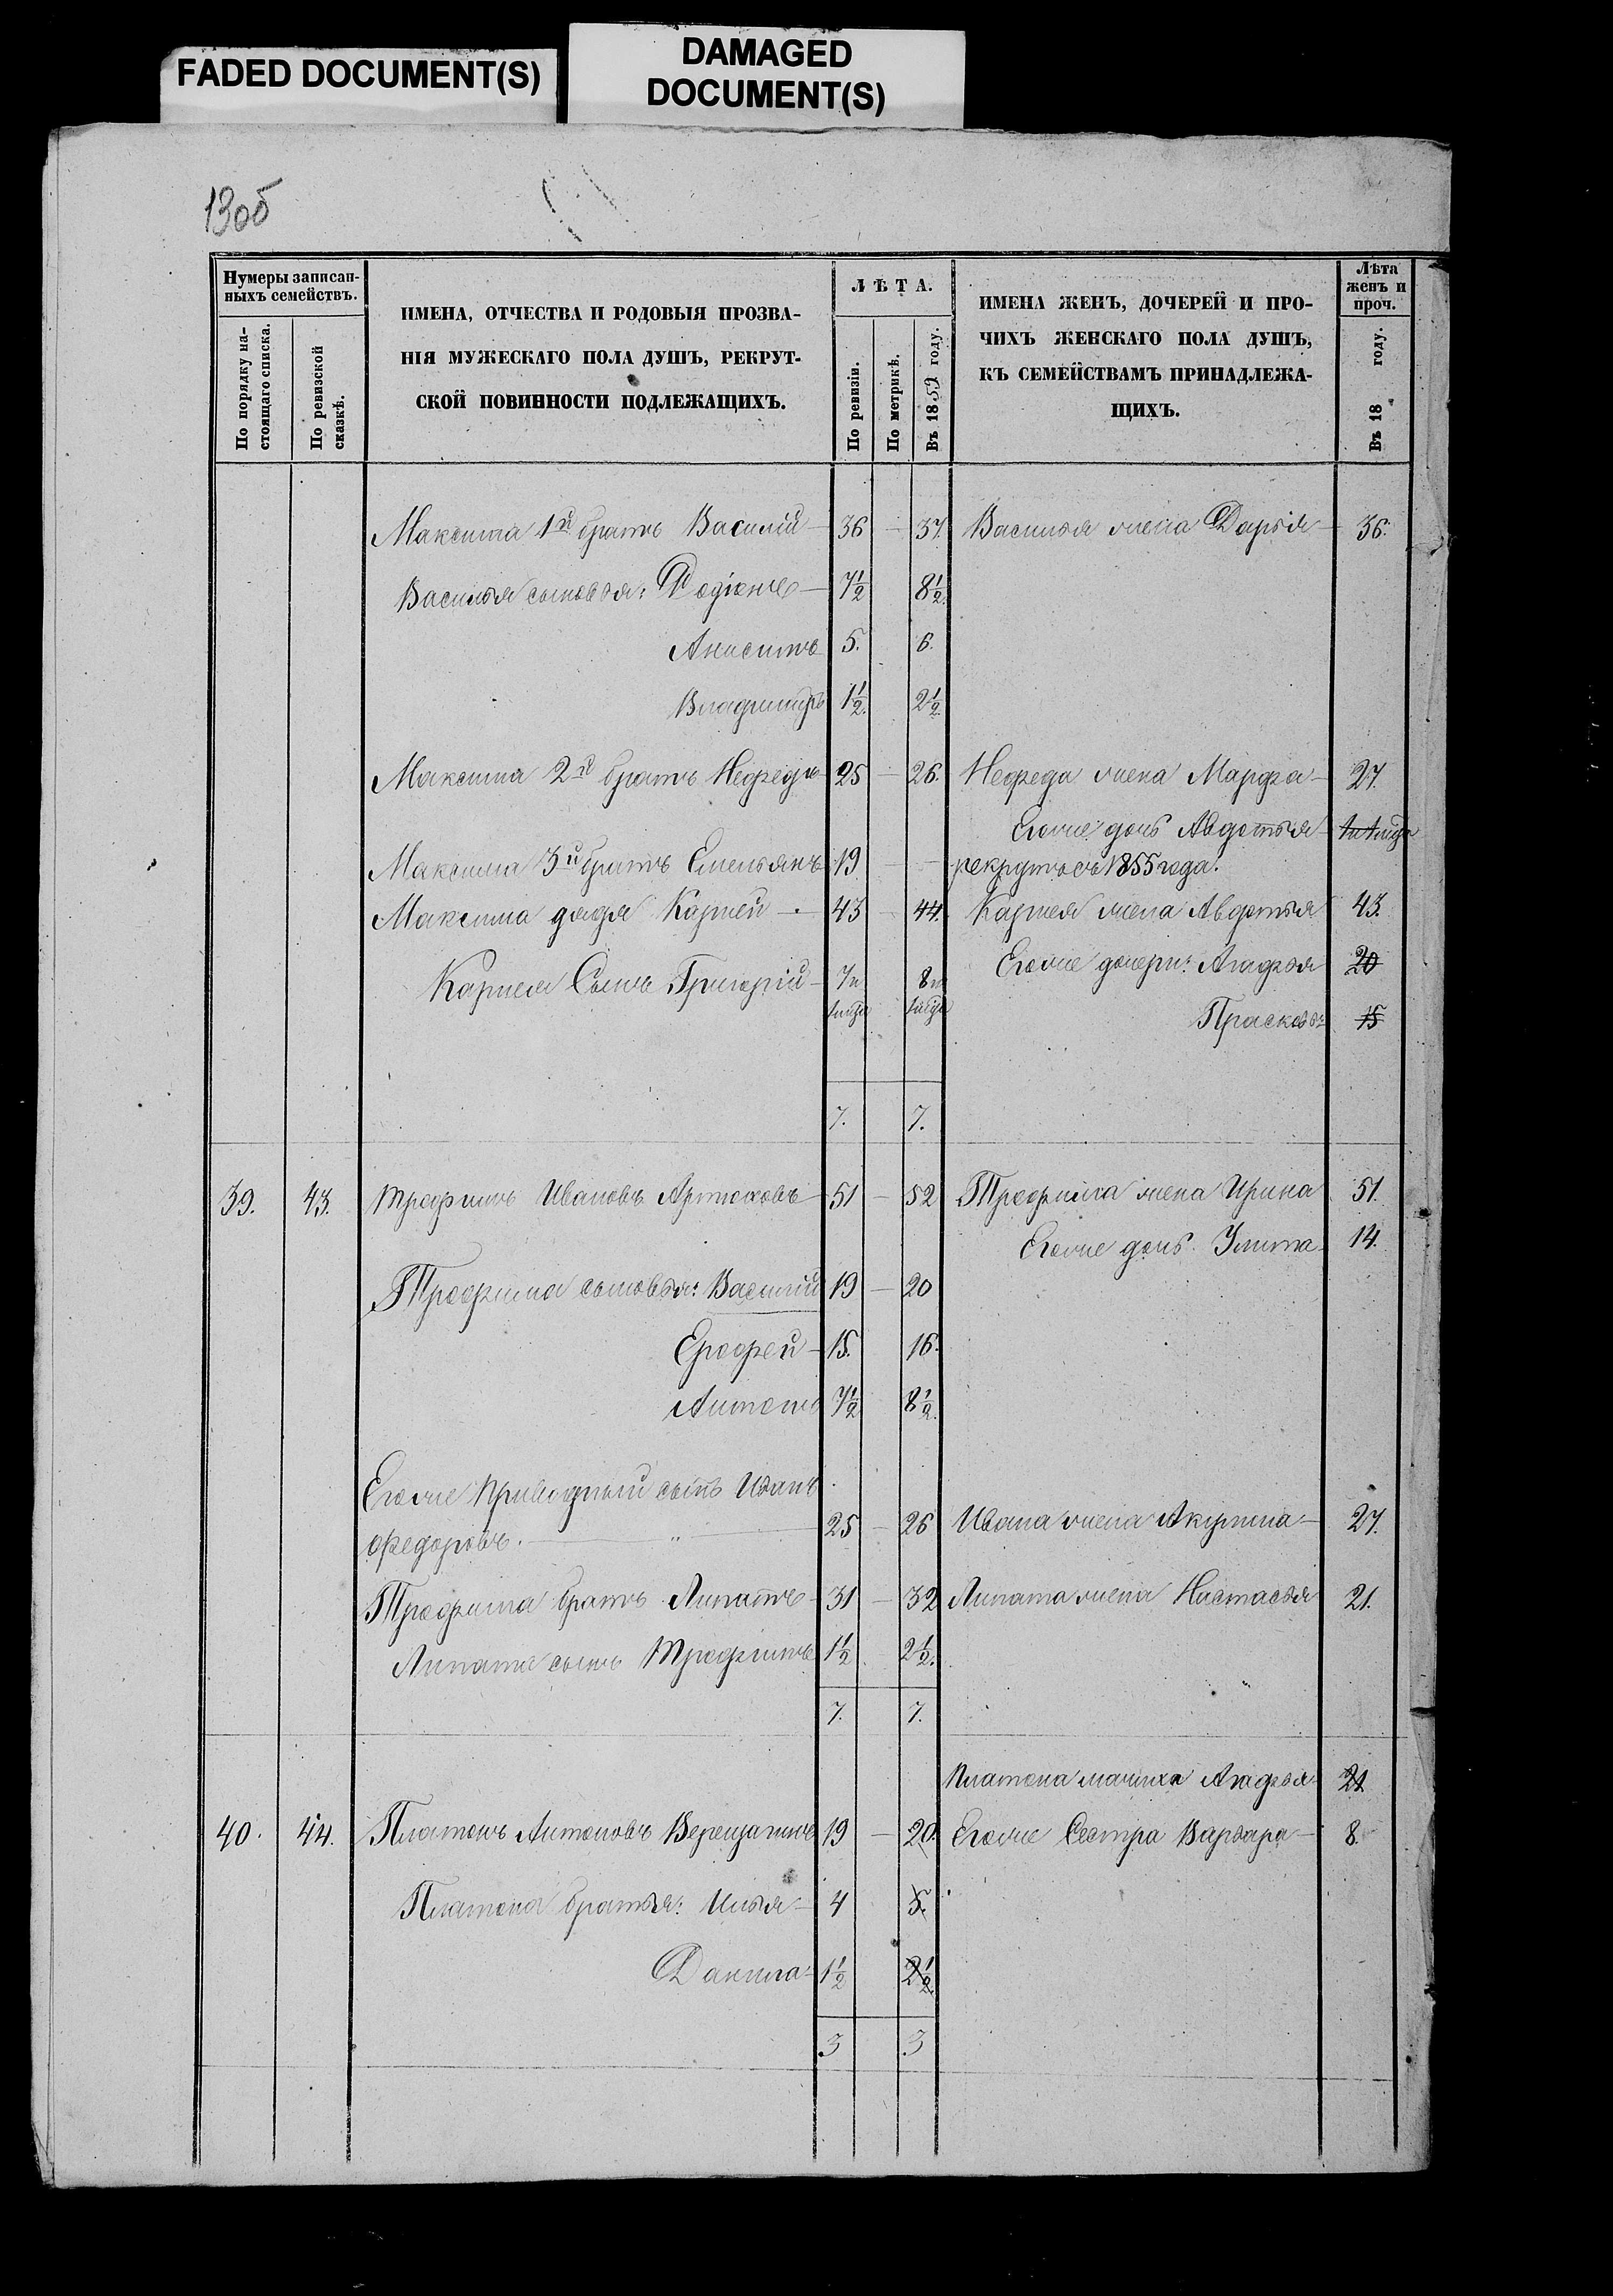 FADED DOCUMENT(S)
DAMAGED
DOCUMENT(S)
130об
Нумеры записан-
ныхъ семействъ.
По порядку на-
стоящаго списка.
По ревизской
сказкѣ.
ИМЕНА, ОТЧЕСТВА И РОДОВЫЯ ПРОЗВА-
НІЯ МУЖЕСКАГО ПОЛА ДУШЪ, РЕКРУТ-
СКОЙ ПОВИННОСТИ ПОДЛЕЖАЩИХЪ.
ЛѢТА.
По ревизіи.
По метрикѣ.
Въ 1859 году.
ИМЕНА ЖЕНЪ, ДОЧЕРЕЙ И ПРО-
ЧИХЪ ЖЕНСКАГО ПОЛА ДУШЪ,
КЪ СЕМЕЙСТВАМЪ ПРИНАДЛЕЖА-
ЩИХЪ.
Лѣта
женъ и
проч.
Въ 18 году.
Максима 1й братъ Василій 36 — 37. Василья жена Дарья 36.
Василья сыновья: Родіонъ 7½ 8½.
Анисимъ 5. 6.
Владиміръ 1½. 2½.
Максима 2й братъ Нефедъ 25 — 26. Нефеда жена Марфа 27.
Егоже дочь Авдотья
Максима 3й братъ Емельянъ 19 — рекрутъ съ 1855 года.
Максима дядя Карпей 43 — 44. Карпея жена Авдотья 43.
Карпея Сынъ Григорій 7н 8н Егоже дочери: Агафья 20
Прасковья 15
7. 7.
39. 43. Трофимъ Ивановъ Артюховъ 51 — 52 Трофима жена Ирина 51.
Егоже дочь Улита 14.
Трофима сыновья: Василій 19 — 20
Ерофей 15. 16.
Антонъ 7½ 8½.
Егоже Приводный сынъ Иванъ
Федоровъ. 25 — 26 Ивана жена Акулина 27.
Трофима братъ Липатъ 31 — 32 Липата жена Настасья 21.
Липата сынъ Трофимъ 1½ 2½.
7. 7.
Платона мачиха Агафья 21
40. 44. Платонъ Антоновъ Верещагинъ 19 — 20. Егоже Сестра Варвара 8
Платона братья: Илья 4 5.
Данила 1½ 2½.
3 3